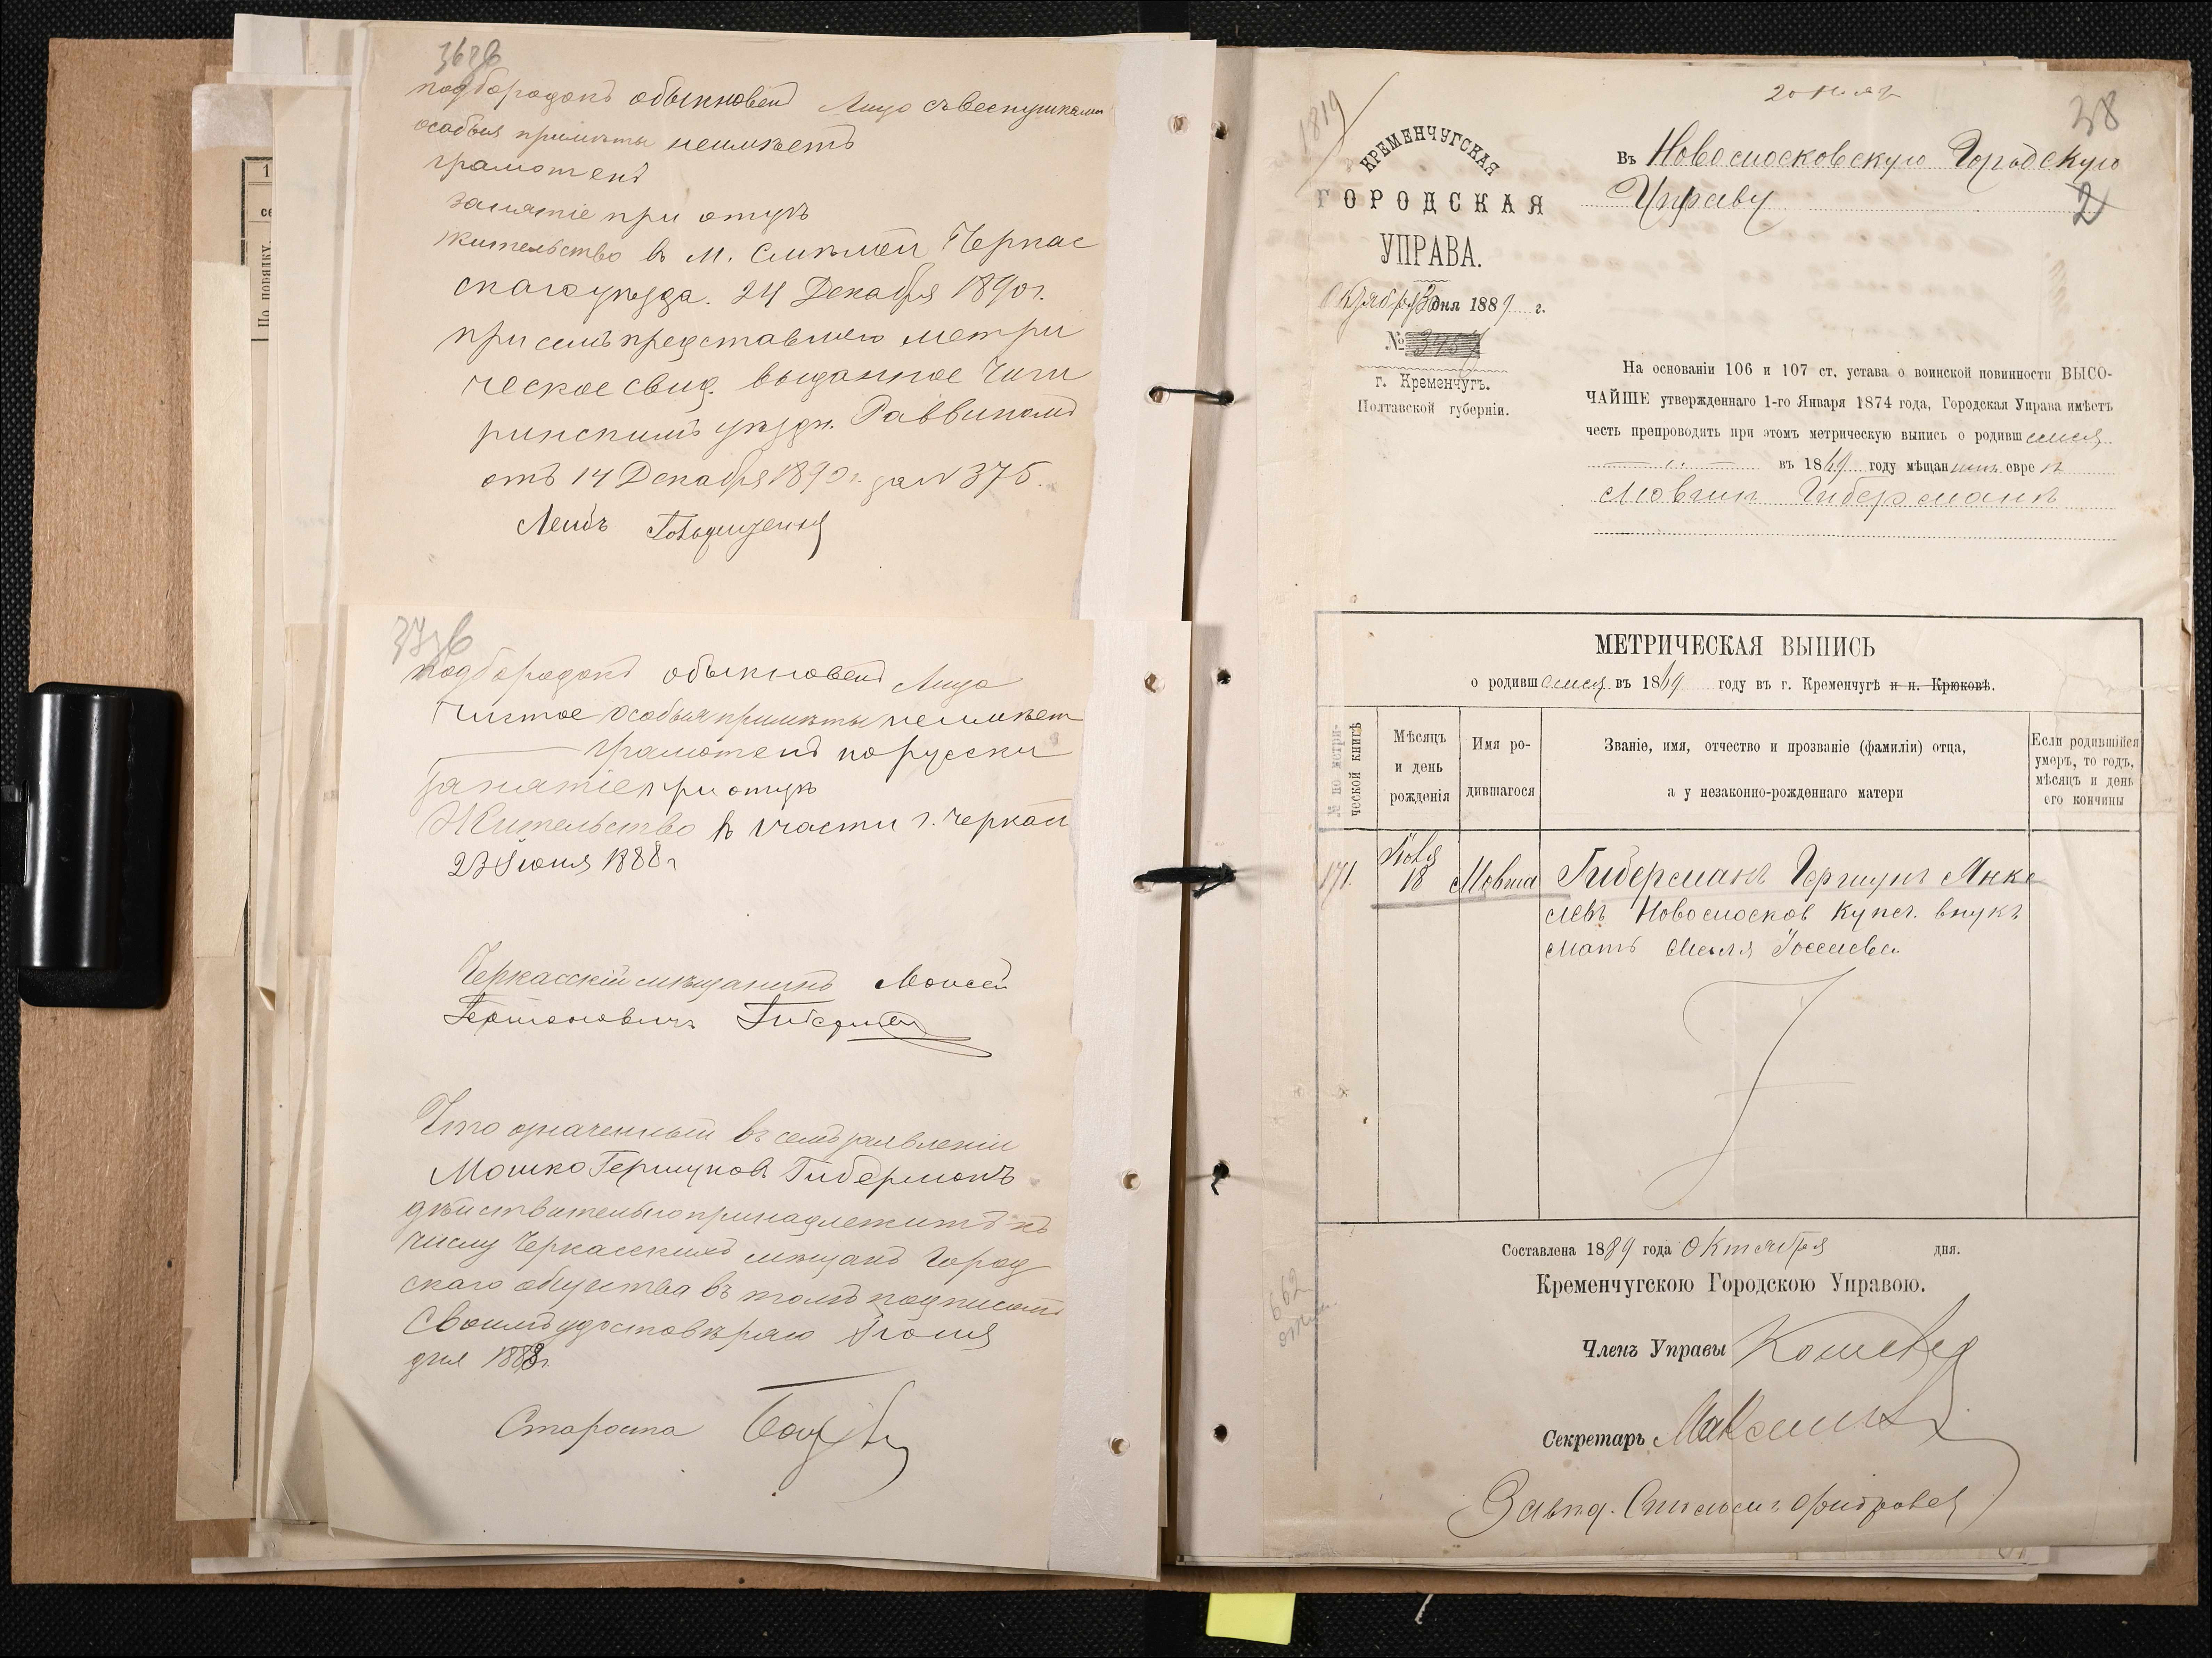 подбородокъ обыкновен Лицо съ веснушками
особыя примѣты неимѣетъ
грамотенъ
занятіе при отцѣ
жительство въ М. Смѣлой Черкас
скаго уѣзда. 24 Декабря 1890 г.
при семъ представляю метри
ческое свид. выданное Чиги
ринскимъ уѣздн. Раввиномъ
отъ 14 Декабря 1890 г. за N 375.
Лейбъ
подбородокъ обыкновен Лицо
чистое особыя примѣты неимѣет
грамотенъ по русски
Занятіе при отцѣ
Жительство в части г. Черкас
23 Іюня 1888 г
Черкасскій мѣщанинъ Моисей
Гиберман
Что означенный въ семъ заявленіи
Мошко Гершунов Гиберманъ
дѣйствительно принадлежитъ къ
числу Черкасскихъ мѣщанъ город
скаго общества въ томъ подписомъ
своимъ удостовѣряю Іюня
дня 1888 г
Староста
1819
КРЕМЕНЧУГСКАЯ
ГОРОДСКАЯ
УПРАВА.
Октября 30 дня 1889 г.
№ 3457
г. Кременчугъ.
Полтавской губерніи.
38
Въ Новомосковскую Городскую
Управу
2
На основаніи 106 и 107 ст. устава о воинской повинности ВЫСО-
ЧАЙШЕ утвержденнаго 1-го Января 1874 года, Городская Управа имѣетъ
честь препроводить при этомъ метрическую выпись о родившемся
въ 1869 году мѣщанинѣ еврѣе
Мовши Гиберманѣ
МЕТРИЧЕСКАЯ ВЫПИСЬ
о родившемся въ 1869 году въ г. Кременчугѣ и п. Крюковѣ.
№ по метри-
ческой книгѣ
Мѣсяцъ
и день
рожденія
Имя ро-
дившагося
Званіе, имя, отчество и прозваніе (фамиліи) отца,
а у незаконно-рожденнаго матери
Если родившійся
умеръ, то годъ,
мѣсяцъ и день
его кончины
171.
18
Мовша
Гиберманъ Гершунъ Янке
левъ Новомосков купеч. внукъ
мать
Составлена 1889 года Октября дня.
Кременчугскою Городскою Управою.
Членъ Управы
Секретарь
662